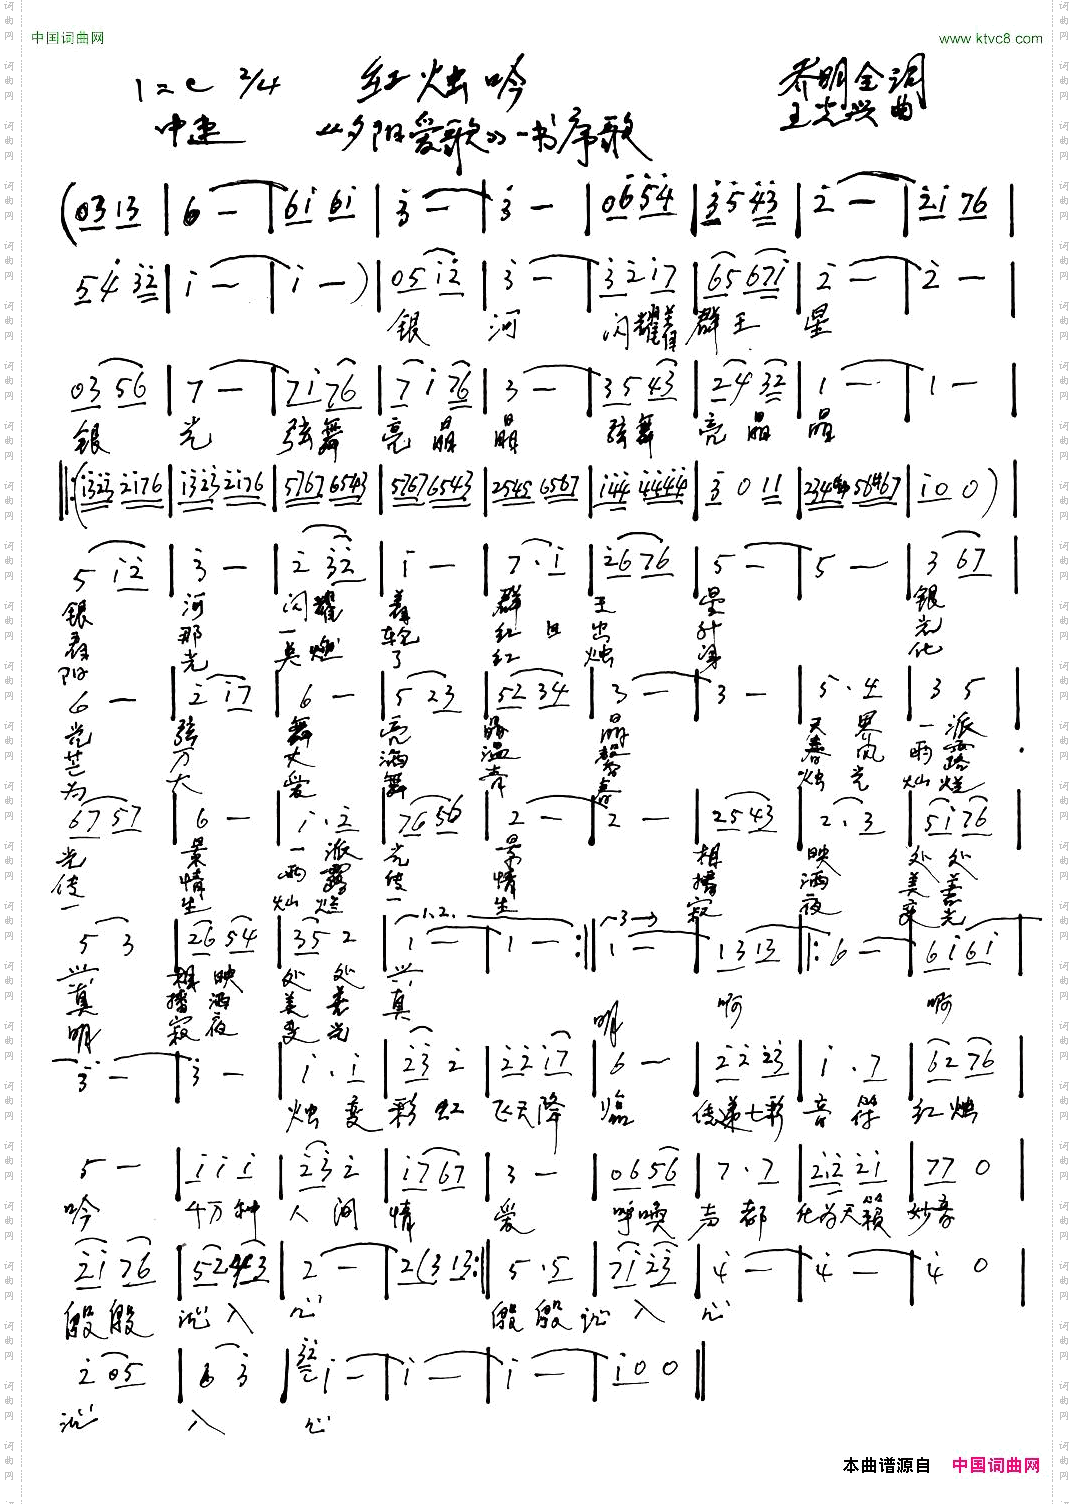 中国词曲网 www.ktvc8.com
1=C 2/4 红烛吟 乔明全词
中速 《夕阳爱歌》一书序歌 王光兴曲
(03 13 | 6 — | 6i 6i | 3 — | 3 — | 0654 | 3543 | 2 — | 2i 76 |
54 32 | i — | i — ) | 05 i2 | 3 — | 32i7 | 65 67i | 2 — | 2 — |
银 河 闪耀着群王 星
03 56 | 7 — | 7i 76 | 7 i 76 | 3 — | 35 43 | 24 32 | 1 — | 1 — |
银 光 弦舞 亮晶 晶 弦舞 亮晶 晶
5 i2 | 3 — | 2 32 | i — | 7· i | 26 76 | 5 — | 5 — | 3 67 |
银 河 闪耀 着 群 王 星 银
那 一 轮 红日 出 升 光
阳 光 点燃 了 红 烛 化
6 — | 2 i7 | 6 — | 5 23 | 52 34 | 3 — | 3 — | 5· 4 | 3 5 |
光 弦 舞 亮 晶 晶 天界 一派
芒 万 丈 满 温 馨 春风 雨露
为 大 爱 舞 青 春 烛光 灿烂
67 57 | 6 — | i· 2 | 76 56 | 2 — | 2 — | 25 43 | 2· 3 | 5i 76 |
光 景 一派 光 景 相 映 处处
传 情 雨露 传 情 播 洒 美善
一 生 灿烂 一 生 寂 夜 变光
5 3 | 26 54 | 35 2 | 1 — | 1 — :|| 1 — | 13 13 |: 6 — | 6i 6i |
兴 相映 处处 兴
真 播洒 美善 真
明 寂夜 变光 明 啊 啊
3 — | 3 — | i· i | 23 2 | 22 i7 | 6 — | 22 23 | i· 7 | 62 76 |
烛变 彩虹 飞天降 临 传递七彩 音符 红烛
5 — | i i i | 23 2 | i7 67 | 3 — | 06 56 | 7· 7 | 2i2 2i | 77 0 |
吟 千万种 人间 情 爱 呼唤 声都 化为天籁 妙音
2i 76 | 52 43 | 2 — | 2(3 13 :|| 5· 5 | 7i 23 | 4 — | 4 — | 4 0 |
殷殷 沁入 心 殷殷 沁入 心
2 05 | 6 3 | i — | i — | i — | i 0 0 ||
沁 入 心
本曲谱源自 中国词曲网